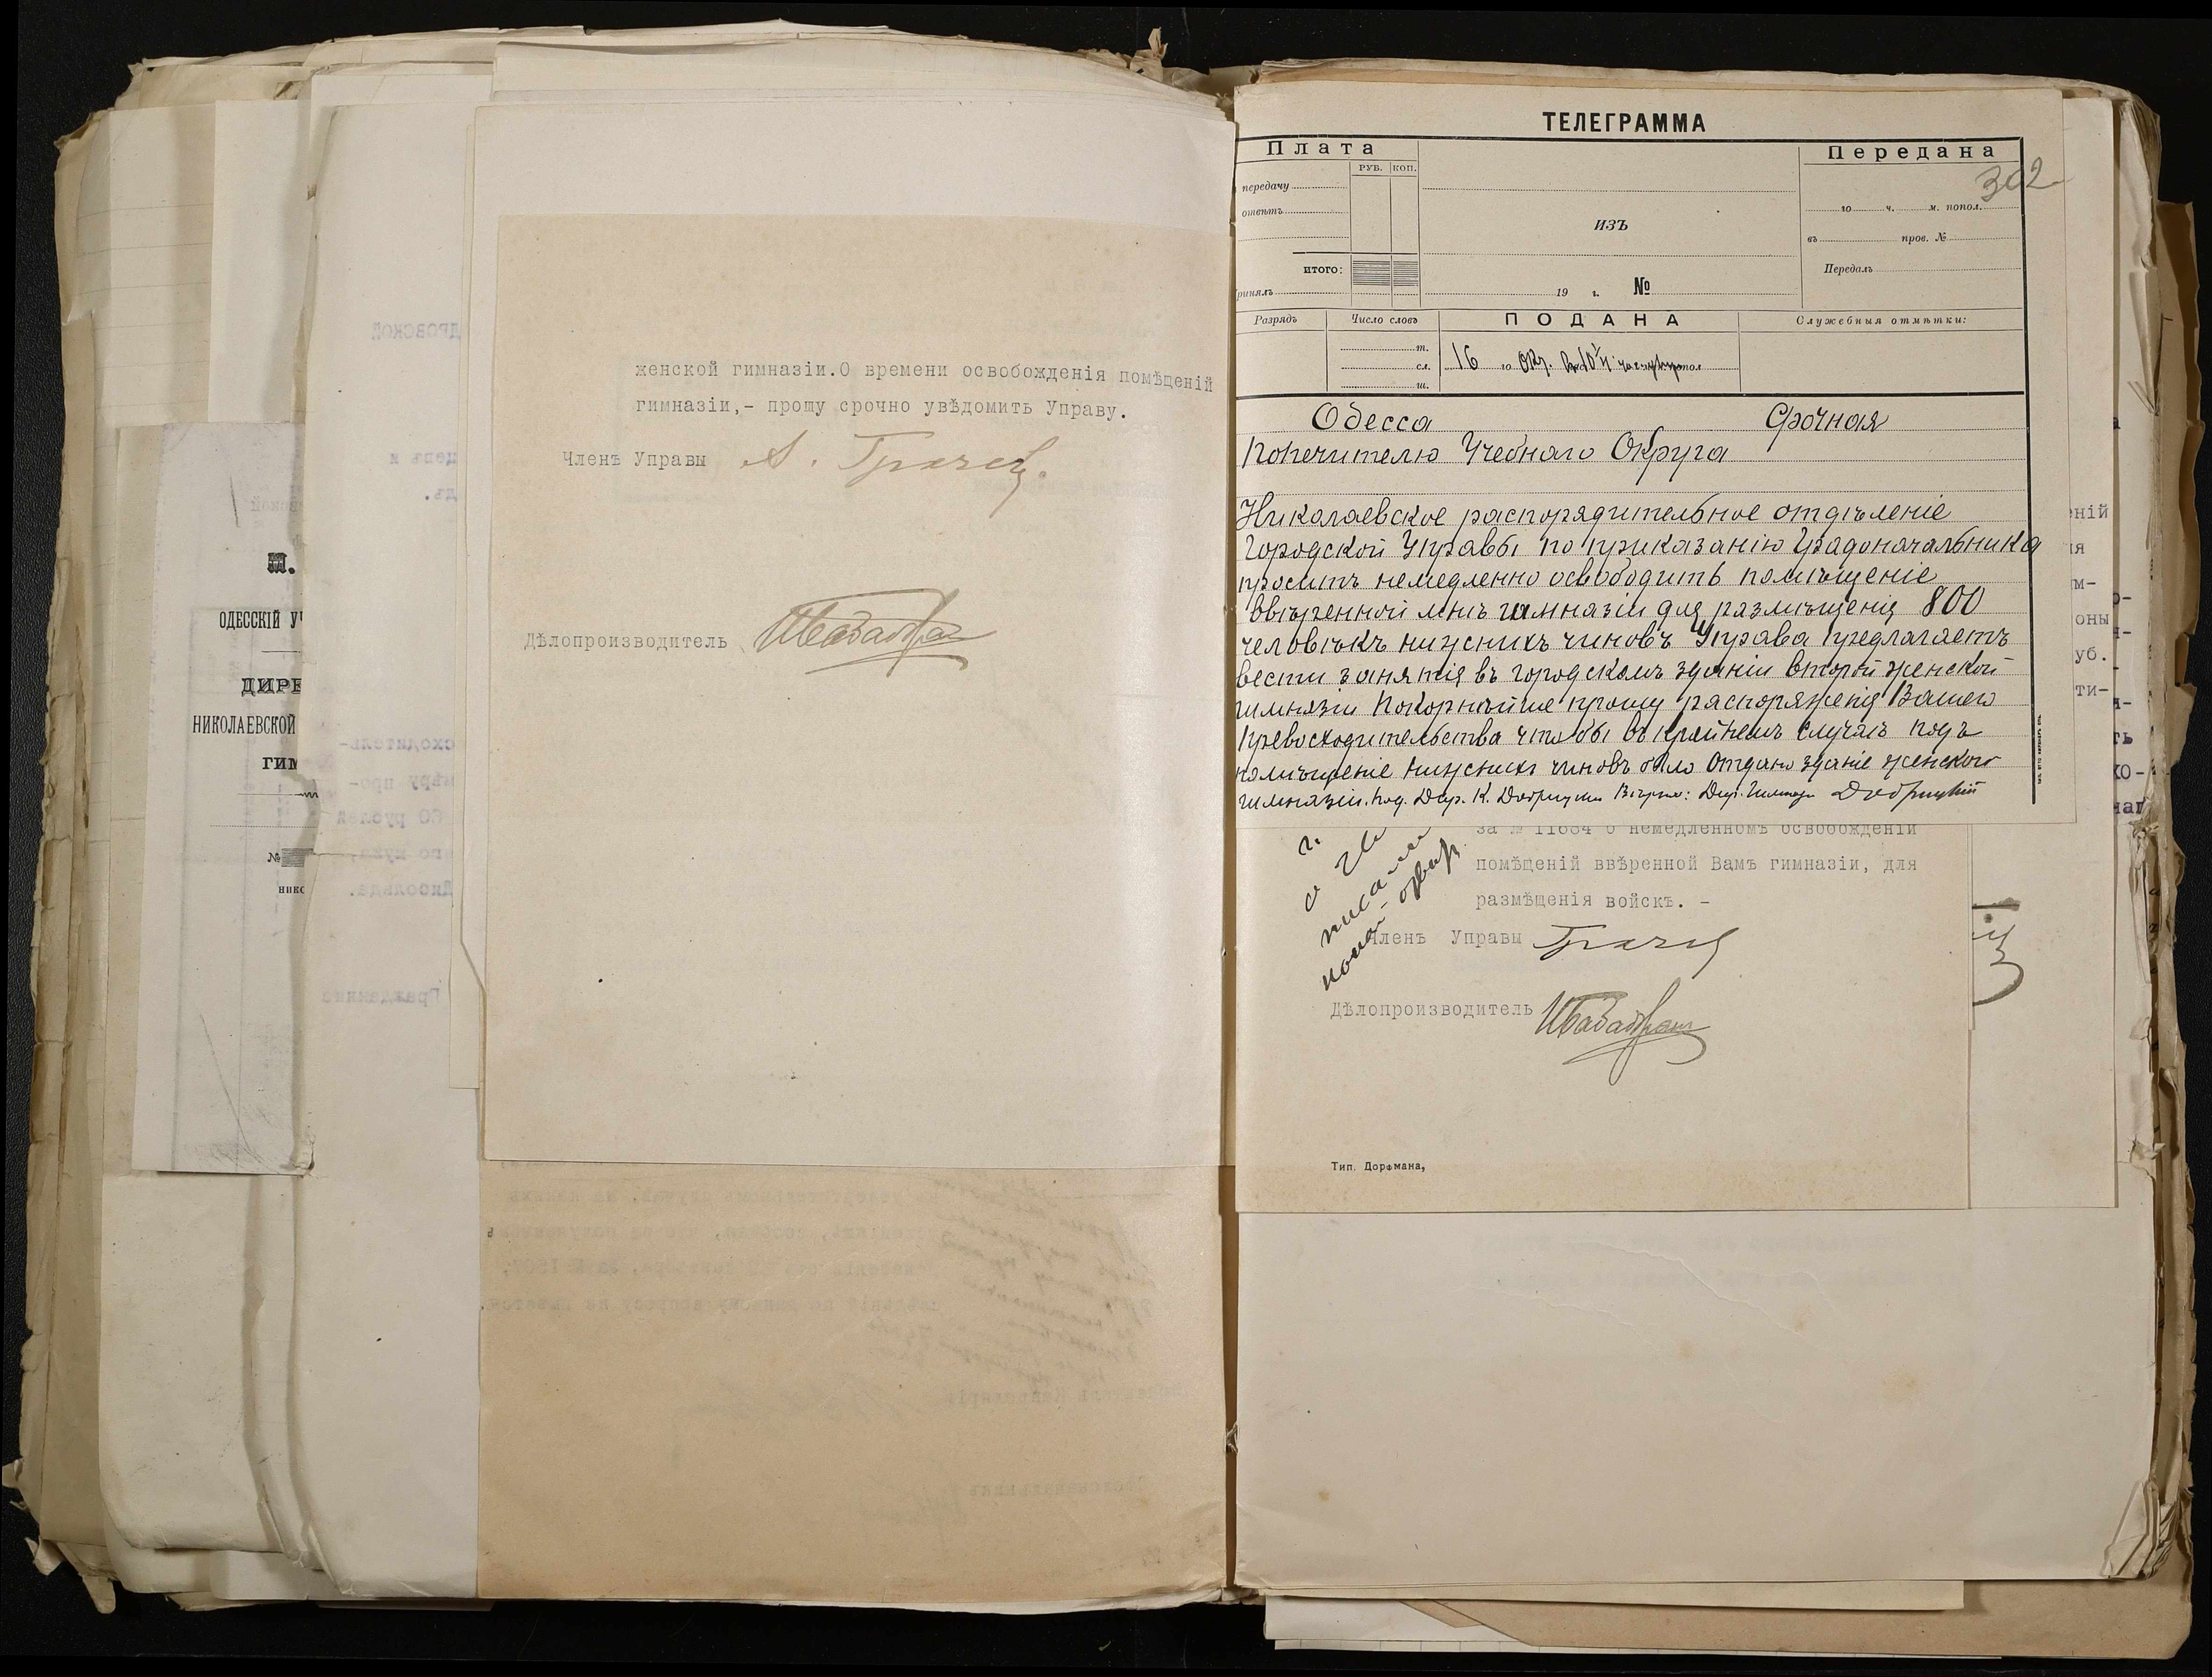 ДРОВСКОЙ
П.
ОДЕССКІЙ УЧ
ДИРЕ
НИКОЛАЕВСКОЙ
ГИМ
№
НИКО
женской гимназіи.О времени освобожденія помѣщеній
гимназіи,- прошу срочно увѣдомить Управу.
Членъ Управы А. Грачевъ.
Дѣлопроизводитель
ТЕЛЕГРАММА
302
Плата
РУБ. КОП.
передачу
отвѣтъ
ИТОГО:
ринялъ
ИЗЪ
19 г. №
Передана
го ч. м. попол.
въ пров. №
Передалъ
Разрядъ
Число словъ
т.
сл.
ш.
ПОДАНА
16 го Окт.
Служебныя отмѣтки:
Одесса Срочная
Попечителю Учебнаго Округа
Николаевское распорядительное отдѣленіе
Городской Управы по приказанію Градоначальника
проситъ немедленно освободить помѣщеніе
ввѣренной мнѣ гимназіи для размѣщенія 800
человѣкъ нижнихъ чиновъ Управа предлагаетъ
вести занятія въ городскомъ зданіи второй женской
гимназіи Покорнѣйше прошу распоряженія Вашего
Превосходительства чтобы въ крайнемъ случаѣ подъ
помѣщеніе нижнихъ чиновъ было отдано зданіе женской
гимназіи. Под. Дир. К. Добрицкій Вѣрно: Дир. Гимназіи Добрицкій
за № 11684 о немедленномъ освобожденіи
помѣщеній ввѣренной Вамъ гимназіи, для
размѣщенія войскъ. -
Членъ Управы Грачев
Дѣлопроизводитель
Тип. Дорфмана,
ній
ія
м-
оны
уб.
ти-